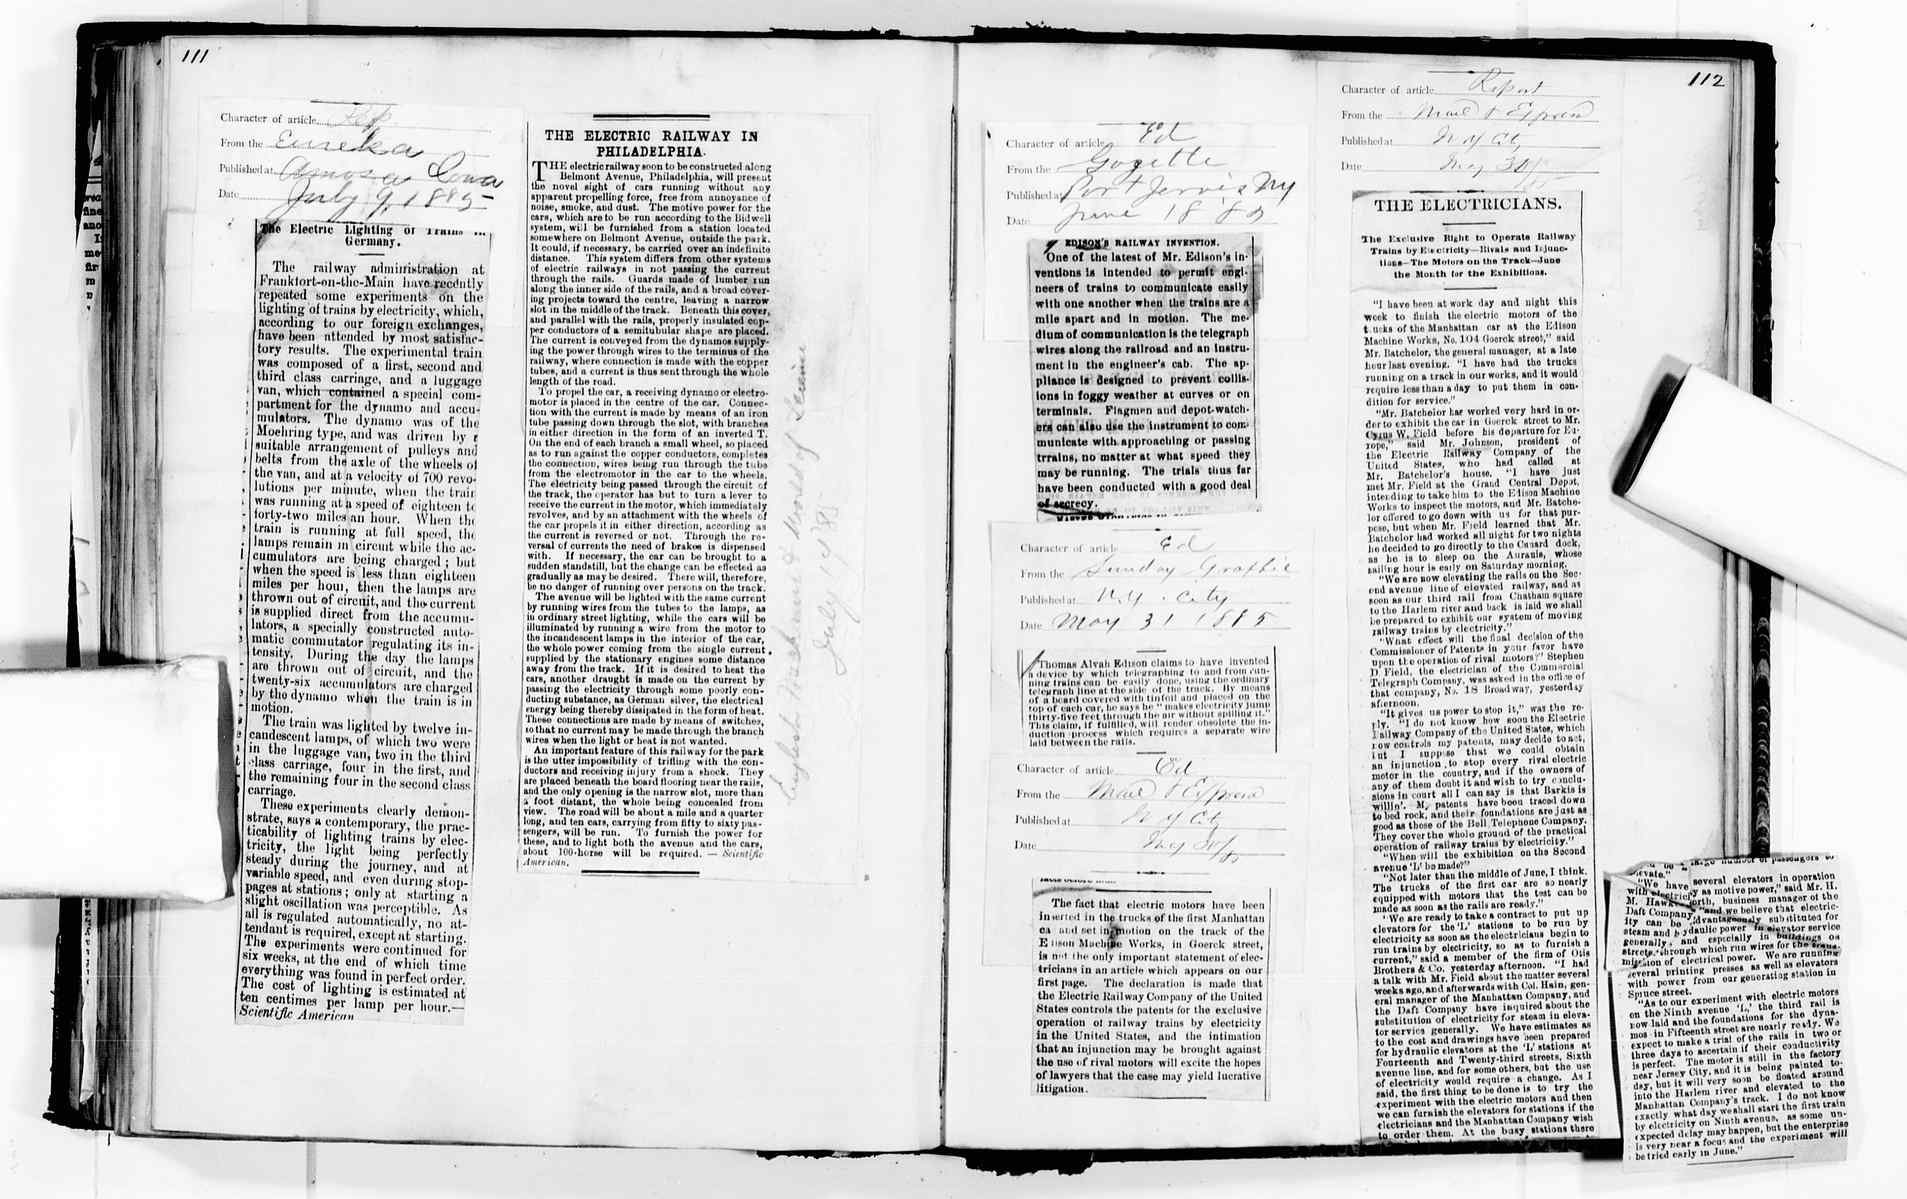 111
Character of article
From the Eureka
Published at Anamosa Iowa
Date July 9, 1885
The Electric Lighting of Trains in
Germany.
The railway administration at
Frankfort-on-the-Main have recently
repeated some experiments on the
lighting of trains by electricity, which,
according to our foreign exchanges,
have been attended by most satisfac-
tory results. The experimental train
was composed of a first, second and
third class carriage, and a luggage
van, which contained a special com-
partment for the dynamo and accu-
mulators. The dynamo was of the
Moehring type, and was driven by a
suitable arrangement of pulleys and
belts from the axle of the wheels of
the van, and at a velocity of 700 revo-
lutions per minute, when the train
was running at a speed of eighteen to
forty-two miles an hour. When the
train is running at full speed, the
lamps remain in circuit while the ac-
cumulators are being charged; but
when the speed is less than eighteen
miles per hour, then the lamps are
thrown out of circuit, and the current
is supplied direct from the accumu-
lators, a specially constructed auto-
matic commutator regulating its in-
tensity. During the day the lamps
are thrown out of circuit, and the
twenty-six accumulators are charged
by the dynamo when the train is in
motion.
The train was lighted by twelve in-
candescent lamps, of which two were
in the luggage van, two in the third
class carriage, four in the first, and
the remaining four in the second class
carriage.
These experiments clearly demon-
strate, says a contemporary, the prac-
ticability of lighting trains by elec-
tricity, the light being perfectly
steady during the journey, and at
variable speed, and even during stop-
pages at stations; only at starting a
slight oscillation was perceptible. As
all is regulated automatically, no at-
tendant is required, except at starting.
The experiments were continued for
six weeks, at the end of which time
everything was found in perfect order.
The cost of lighting is estimated at
ten centimes per lamp per hour.—
Scientific American
THE ELECTRIC RAILWAY IN
PHILADELPHIA.
THE electric railway soon to be constructed along
Belmont Avenue, Philadelphia, will present
the novel sight of cars running without any
apparent propelling force, free from annoyance of
noise, smoke, and dust. The motive power for the
cars, which are to be run according to the Bidwell
system, will be furnished from a station located
somewhere on Belmont Avenue, outside the park.
It could, if necessary, be carried over an indefinite
distance. This system differs from other systems
of electric railways in not passing the current
through the rails. Guards made of lumber run
along the inner side of the rails, and a broad cover-
ing projects toward the centre, leaving a narrow
slot in the middle of the track. Beneath this cover,
and parallel with the rails, properly insulated cop-
per conductors of a semitubular shape are placed.
The current is conveyed from the dynamos supply-
ing the power through wires to the terminus of the
railway, where connection is made with the copper
tubes, and a current is thus sent through the whole
length of the road.
To propel the car, a receiving dynamo or electro-
motor is placed in the centre of the car. Connec-
tion with the current is made by means of an iron
tube passing down through the slot, with branches
in either direction in the form of an inverted T.
On the end of each branch a small wheel, so placed
as to run against the copper conductors, completes
the connection, wires being run through the tube
from the electromotor in the car to the wheels.
The electricity being passed through the circuit of
the track, the operator has but to turn a lever to
receive the current in the motor, which immediately
revolves, and by an attachment with the wheels of
the car propels it in either direction, according as
the current is reversed or not. Through the re-
versal of currents the need of brakes is dispensed
with. If necessary, the car can be brought to a
sudden standstill, but the change can be effected as
gradually as may be desired. There will, therefore,
be no danger of running over persons on the track.
The avenue will be lighted with the same current
by running wires from the tubes to the lamps, as
in ordinary street lighting, while the cars will be
illuminated by running a wire from the motor to
the incandescent lamps in the interior of the car,
the whole power coming from the single current
supplied by the stationary engines some distance
away from the track. If it is desired to heat the
cars, another draught is made on the current by
passing the electricity through some poorly con-
ducting substance, as German silver, the electrical
energy being thereby dissipated in the form of heat.
These connections are made by means of switches,
so that no current may be made through the branch
wires when the light or heat is not wanted.
An important feature of this railway for the park
is the utter impossibility of trifling with the con-
ductors and receiving injury from a shock. They
are placed beneath the board flooring near the rails,
and the only opening is the narrow slot, more than
a foot distant, the whole being concealed from
view. The road will be about a mile and a quarter
long, and ten cars, carrying from fifty to sixty pas-
sengers, will be run. To furnish the power for
these, and to light both the avenue and the cars,
about 100-horse will be required. — Scientific
American.
English Mechanic & World of Science
July 14 85
112
Character of article Ed
From the Gazette
Published at Port Jervis Ny
Date June 18 85
EDISON'S RAILWAY INVENTION.
One of the latest of Mr. Edison's in-
ventions is intended to permit engi-
neers of trains to communicate easily
with one another when the trains are a
mile apart and in motion. The me-
dium of communication is the telegraph
wires along the railroad and an instru-
ment in the engineer's cab. The ap-
pliance is designed to prevent collis-
ions in foggy weather at curves or on
terminals. Flagmen and depot-watch-
ers can also use the instrument to com-
municate with approaching or passing
trrains, no matter at what speed they
may be running. The trials thus far
have been conducted with a good deal
of secrecy.
Character of article Ed
From the Sunday Graphic
Published at N.Y. City
Date May 31 1885
Thomas Alvah Edison claims to have invented
a device by which telegraphing to and from run-
ning trains can be easily done, using the ordinary
telegraph line at the side of the track. By means
of a board covered with tinfoil and placed on the
top of each car, he says he "makes electricity jump
thirty-five feet through the air without spilling it."
This claim, if fulfilled, will render obsolete the in-
duction process which requires a separate wire
laid between the rails.
Character of article Ed
From the Mail & Express
Published at N Y City
Date May 30/85
The fact that electric motors have been
inserted in the trucks of the first Manhattan
ca and set in motion on the track of the
Edison Machine Works, in Goerck street,
is not the only important statement of elec-
tricians in an article which appears on our
first page. The declaration is made that
the Electric Railway Company of the United
States controls the patents for the exclusive
operation of railway trains by electricity
in the United States, and the intimation
that an injunction may be brought against
the use of rival motors will excite the hopes
of lawyers that the case may yield lucrative
litigation.
Character of article Report
From the Mail & Express
Published at N Y City
Date May 30/85
THE ELECTRICIANS.
The Exclusive Right to Operate Railway
Trains by Electricity—Rivals and Injunc-
tions—The Motors on the Track—June
the Month for the Exhibitions.
"I have been at work day and night this
week to finish the electric motors of the
trucks of the Manhattan car at the Edison
Machine Works, No. 104 Goerck street," said
Mr. Batchelor, the general manager, at a late
hour last evening. "I have had the trucks
running on a track in our works, and it would
require less than a day to put them in con-
dition for service."
"Mr. Batchelor has worked very hard in or-
der to exhibit the car in Goerck street to Mr.
Cyrus W. Field before his departure for Eu-
rope," said Mr. Johnson, president of
the Electric Railway Company of the
United States, who had called at
Mr. Batchelor's house. "I have just
met Mr. Field at the Grand Central Depot,
intending to take him to the Edison Machine
Works to inspect the motors, and Mr. Batche-
lor offered to go down with us for that pur-
pose, but when Mr. Field learned that Mr.
Batchelor had worked all night for two nights
he decided to go directly to the Cunard dock,
as he is to sleep on the Aurania, whose
sailing hour is early on Saturday morning.
"We are now elevating the rails on the Sec-
ond avenue line of elevated railway, and as
soon as our third rail from Chatham square
to the Harlem river and back is laid we shall
be prepared to exhibit our system of moving
railway trains by electricity."
"What effect will the final decision of the
Commissioner of Patents in your favor have
upon the operation of rival motors?" Stephen
D. Field, the electrician of the Commercial
Telegraph Company, was asked in the office of
that company, No. 18 Broadway, yesterday
afternoon.
"It gives us power to stop it," was the re-
ply. "I do not know how soon the Electric
Railway Company of the United States, which
now controls my patents, may decide to act,
but I suppose that we could obtain
an injunction to stop every rival electric
motor in the country, and if the owners of
any of them doubt it and wish to try conclu-
sions in court all I can say is that Barkis is
willin'. My patents have been traced down
to bed rock, and their foundations are just as
good as those of the Bell Telephone Company.
They cover the whole ground of the practical
operation of railway trains by electricity."
"When will the exhibition on the Second
avenue 'L' be made?"
"Not later than the middle of June, I think.
The trucks of the first car are so nearly
equipped with motors that the test can be
made as soon as the rails are ready."
"We are ready to take a contract to put up
elevators for the 'L' stations to be run by
electricity as soon as the electricians begin to
run trains by electricity, so as to furnish a
current," said a member of the firm of Otis
Brothers & Co. yesterday afternoon. "I had
a talk with Mr. Field about the matter several
weeks ago, and afterwards with Col. Hain, gen-
eral manager of the Manhattan Company, and
the Daft Company have inquired about the
substitution of electricity for steam in eleva-
tor service generally. We have estimates as
to the cost and drawings have been prepared
for hydraulic elevators at the 'L' stations at
Fourteenth and Twenty-third streets, Sixth
avenue line, and for some others, but the use
of electricity would require a change. As I
said, the first thing to be done is to try the
experiment with the electric motors and then
we can furnish the elevators for stations if the
electricians and the Manhattan Company wish
to order them. At the busy stations there
large number of passengers to
elevate."
"We have several elevators in operation
with electricity as motive power," said Mr. H.
M. Hawkesworth, business manager of the
Daft Company, "and we believe that electric-
ity can be advantageously substituted for
steam and hydraulic power in elevator service
generally, and especially in buildings on
streets through which run wires for the trans-
mission of electrical power. We are running
several printing presses as well as elevators
with power from our generating station in
Spruce street.
"As to our experiment with electric motors
on the Ninth avenue 'L,' the third rail is
now laid and the foundations for the dyna-
mos in Fifteenth street are nearly ready. We
expect to make a trial of the rails in two or
three days to ascertain if their conductivity
is perfect. The motor is still in the factory
near Jersey City, and it is being painted to-
day, but it will very soon be floated around
into the Harlem river and elevated to the
Manhattan Company's track. I do not know
exactly what day we shall start the first train
by electricity on Ninth avenue, as some un-
expected delay may happen, but the enterprise
is very near a focus and the experiment will
be tried early in June."